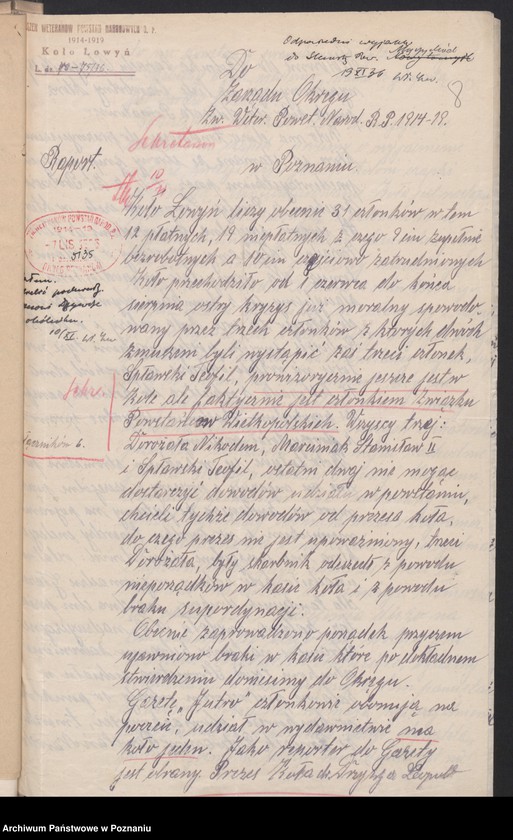 ZWIĄZEK WETERANÓW POWSTAŃ NARODOWYCH R. P.
1914-1919
Koło Lowyń
L. dz.
Odpowiedni wypisać
do
19 XI 36
8
Do
Zarządu Okręgu
Zw. Weter. Powst. Narod. R.P. 1914-19.
Sekretariat
w Poznaniu.
Raport.
10/XI
Koło Lowyń liczy obecnie 31 członków w tem
12 płatnych, 19 niepłatnych z czego 9 ciu zupełnie
bezrobotnych a 10 ciu częściowo zatrudnionych
Koło przechodziło od 1 czerwca do końca
sierpnia ostry kryzys już moralny spowodo-
wany przez trzech członków z których dwóch
zmuszeni byli wystąpić zaś trzeci członek,
Spławski Teofil, prowizorycznie jeszcze jest w
kole ale faktycznie jest członkiem Związku
Powstańców Wielkopolskich. Wszyscy trzej:
Dorożała Nikodem, Marciniak Stanisław II
i Spławski Teofil, ostatni dwaj nie mogąc
dostarczyć dowodów udziału w powstaniu,
chcieli tychże dowodów od prezesa koła,
do czego prezes nie jest upoważniony, trzeci
Dorożała, były skarbnik odszedł z powodu
nieporządków w kasie koła i z powodu
braku supordynacji.
Obecnie zaprowadzono porządek przyczem
ujawniono braki w kasie które po dokładnem
stwierdzeniu doniesimy do Okręgu.
Gazetę „Jutro" członkowie abonują na
poczcie, udział w wydawnictwie ma
koło jeden. Jako reporter do Gazety
jest obrany Prezes Koła dh.
5135
10/XI
Sekr.
6.
Archiwum Państwowe w Poznaniu